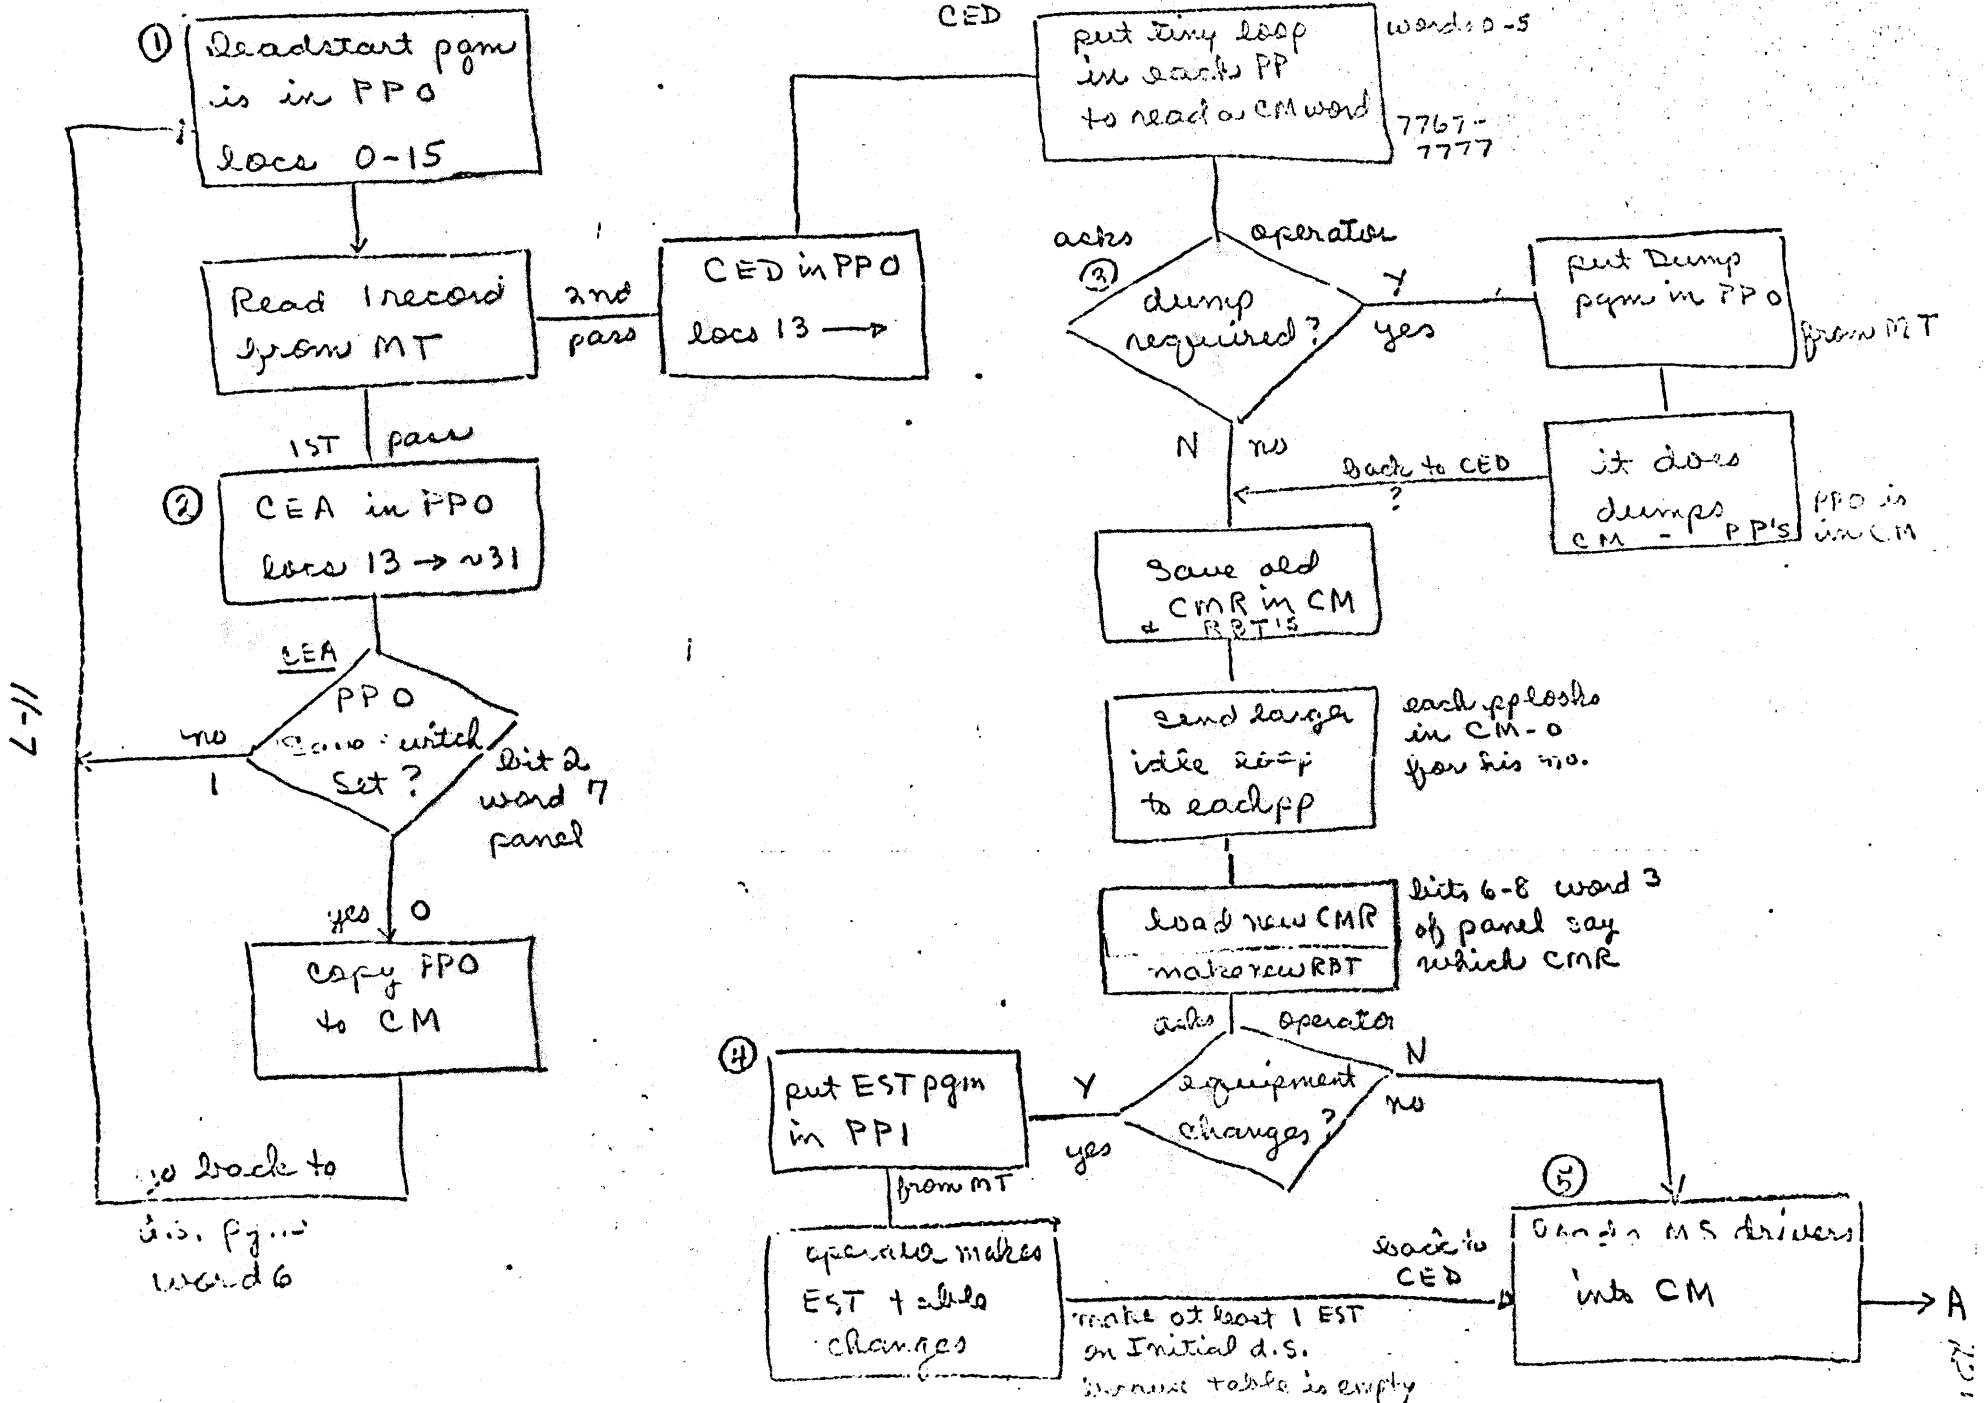 ①
Deadstart pgm
is in PP0
locs 0-15
Read 1 record
from MT
2nd
pass
CED in PP0
locs 13 →
1ST pass
②
CEA in PP0
locs 13 → ~31
CEA
PP0
switch
Set?
bit 2
word 7
panel
no
1
yes 0
copy PP0
to CM
back to
word 6
11-7
CED
put tiny loop
in each PP
to read a CM word
words 0-5
7767-
7777
asks operator
③
dump
required?
Y
yes
put Dump
pgm in PP0
from MT
it does
dumps
CM - PP's
PP0 is
in CM
back to CED
?
N no
Save old
CMR in CM
& RBT's
send larger
idle loop
to each pp
each pp looks
in CM-0
for his no.
load new CMR
make new RBT
bits 6-8 word 3
of panel say
which CMR
asks operator
equipment
changes?
N
no
Y
yes
④
put EST pgm
in PP1
from MT
operator makes
EST table
changes
back to
CED
make at least 1 EST
on Initial d.s.
because table is empty
⑤
MS drivers
into CM
A